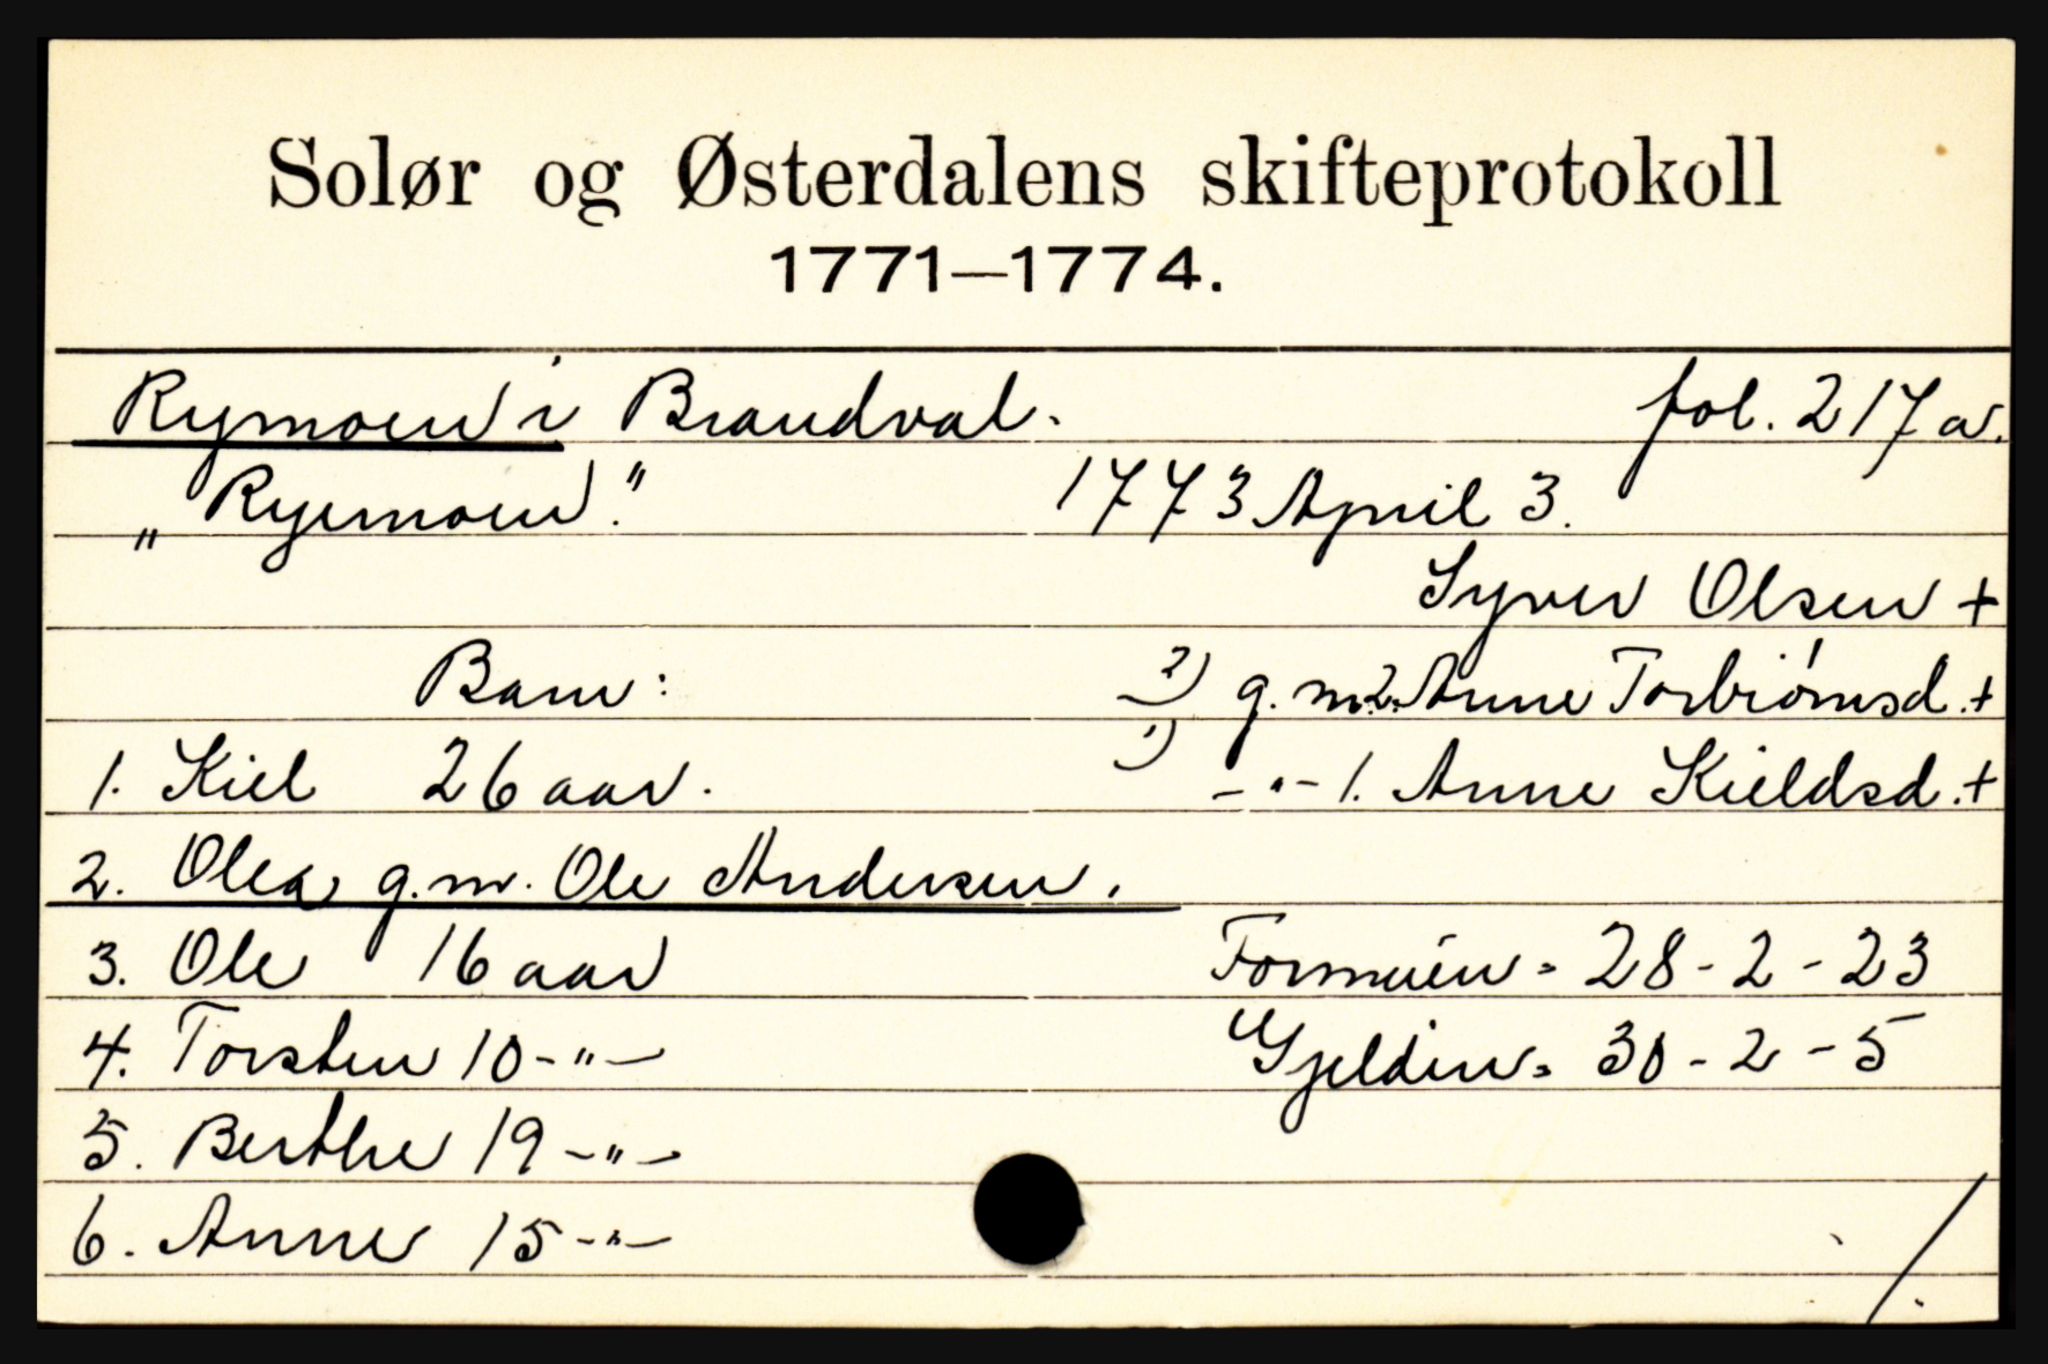 Solør og Østerdalens skifteprotokoll
1771—1774.
Rymoen i Brandval. fol. 217a.
„Ryemoen." 1773 April 3.
Syver Olsen +
Barn: 2) g.m. 2. Anne Torbiørnsd. +
1. Kiel 26 aar. 1) -"- 1. Anne Kieldsd. +
2. Olea g.m. Ole Andersen.
3. Ole 16 aar Formuen = 28-2-23
4. Torsten 10 -"- Gjelden = 30-2-5
5. Berthe 19 -"-
6. Anne 15 -"- ./.